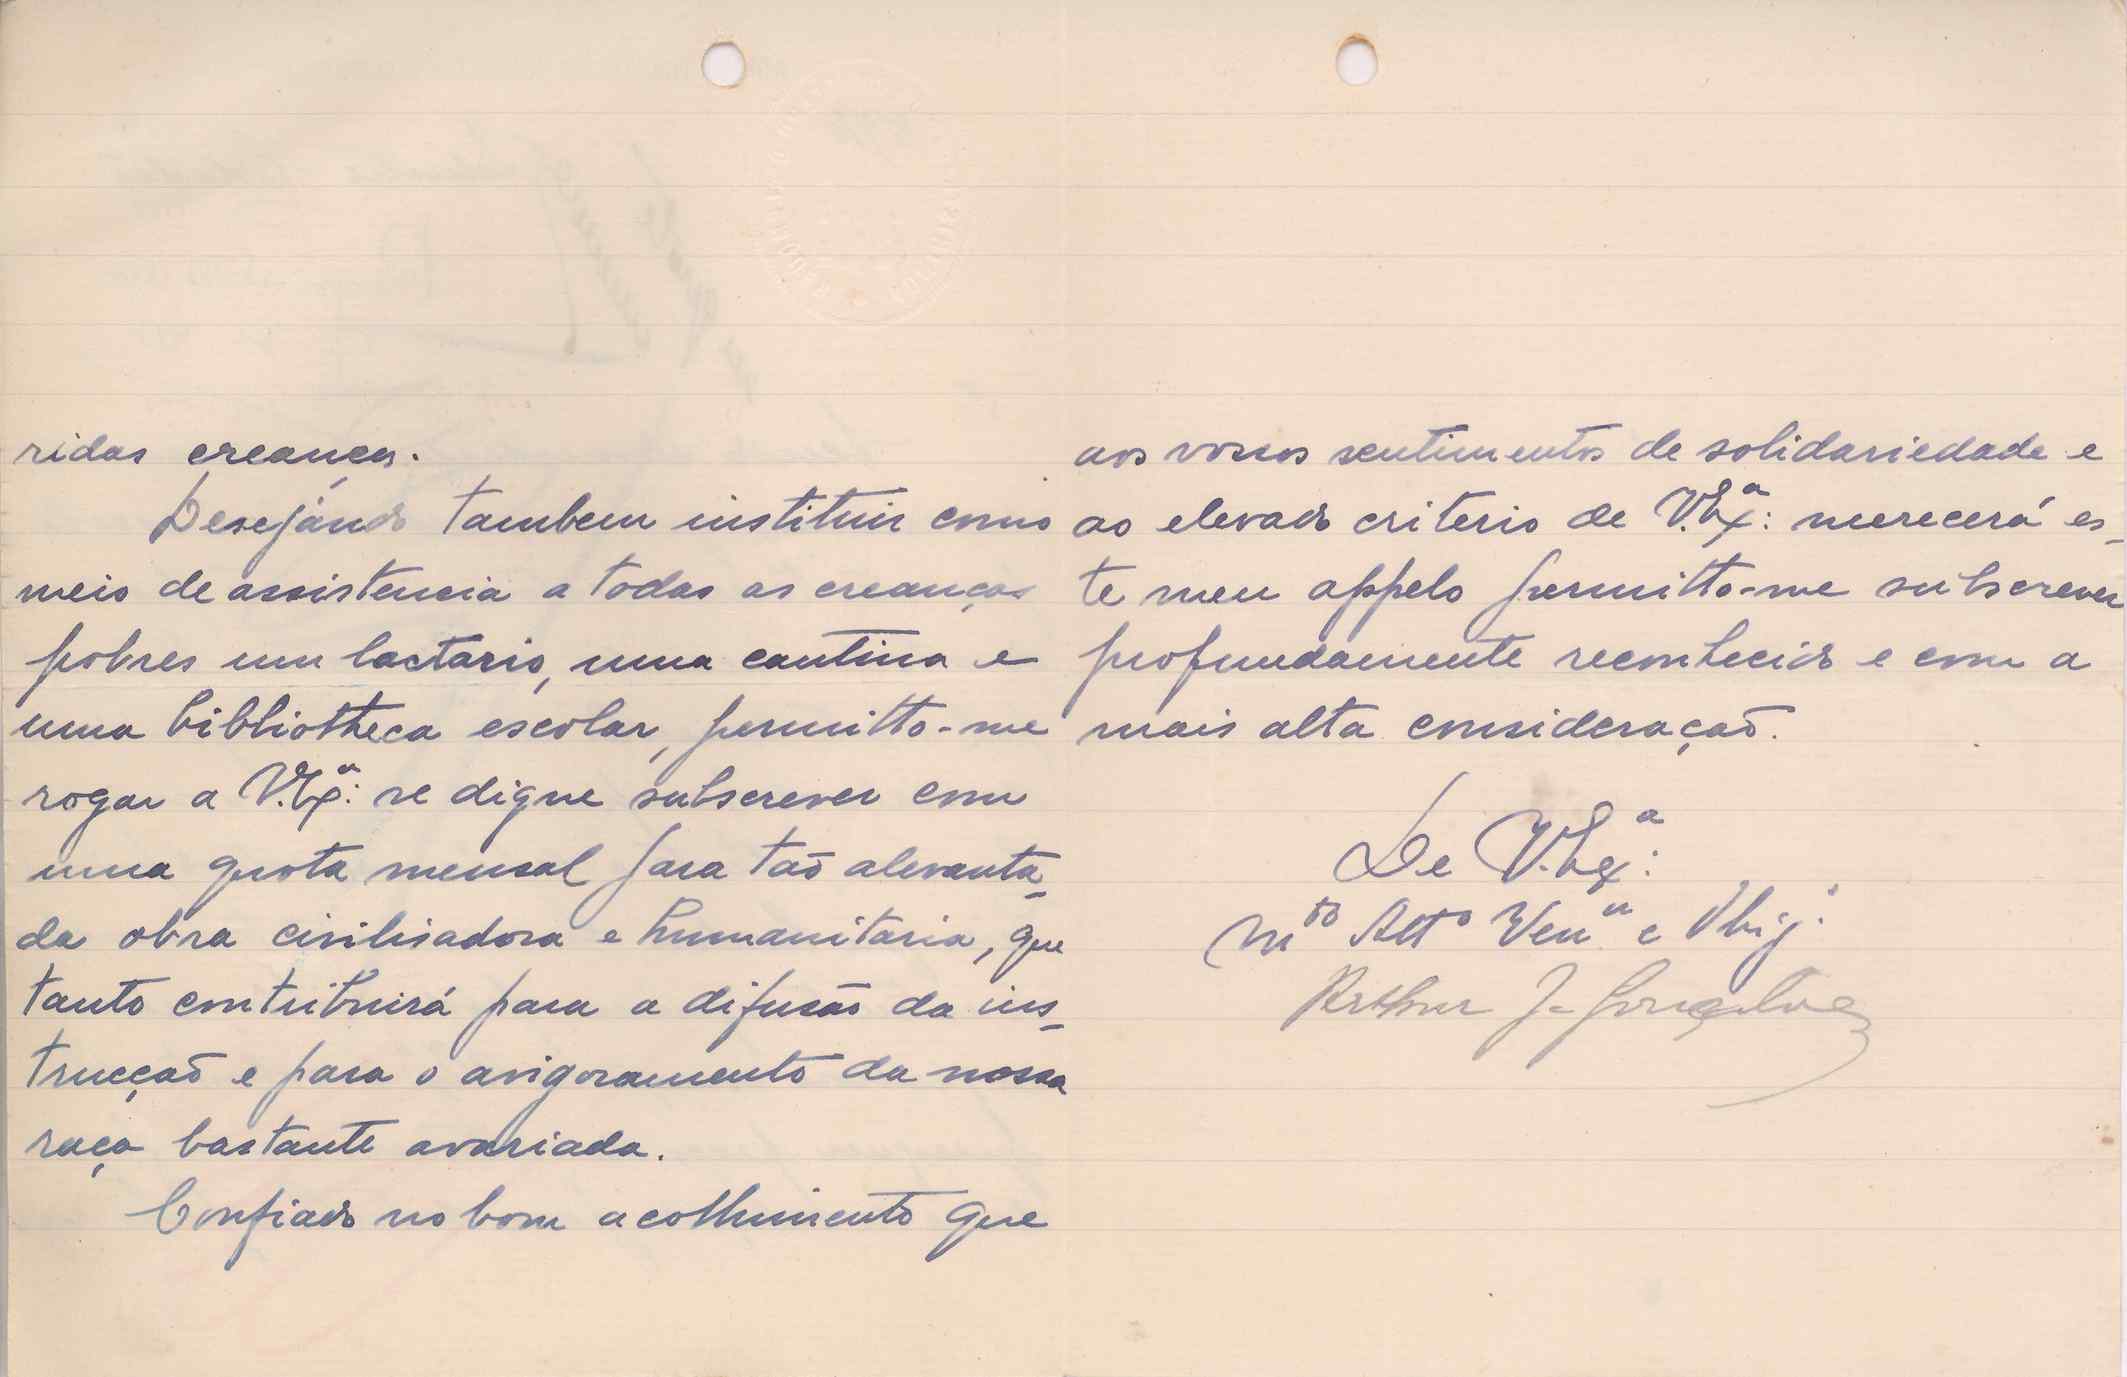 ridas creanças.
Desejando tambem instituir como
meio de assistencia a todas as creanças
pobres um lactario, uma cantina e
uma bibliotheca escolar, permitto-me
rogar a V. Exª: se digne subscrever com
uma quota mensal para tão alevanta-
da obra civilisadora e humanitaria, que
tanto contribuirá para a difusão da ins-
trucção e para o avigoramento da nossa
raça bastante avariada.
Confiado no bom acolhimento que
aos vossos sentimentos de solidariedade e
ao elevado criterio de V. Exª: merecerá es-
te meu appelo permitto-me subscrever
profundamente reconhecido e com a
mais alta consideração.
De V. Exª:
Mto Atto Venor e Obrigº
Arthur J. Gonçalves